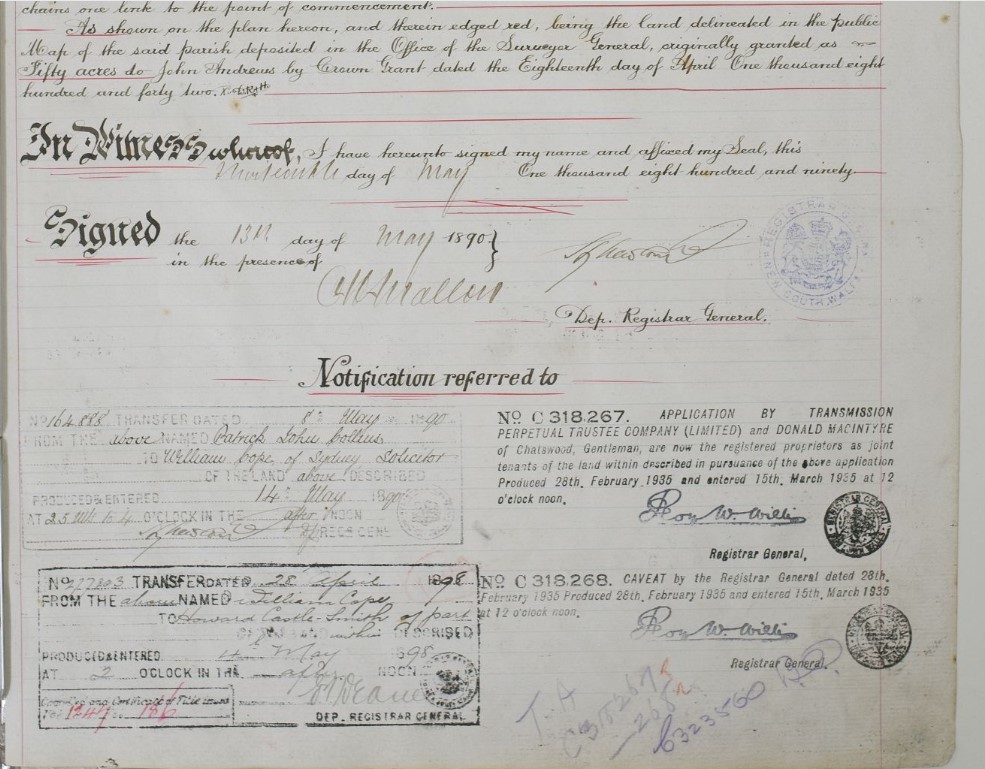 chains one link to the point of commencement.
As shown on the plan hereon, and therein edged red, being the land delineated in the public
Map of the said parish deposited in the Office of the Surveyor General, originally granted as
Fifty acres to John Andrews by Crown Grant dated the Eighteenth day of April One thousand eight
hundred and forty two.
In Witness whereof, I have hereunto signed my name and affixed my Seal, this
Thirteenth day of May One thousand eight hundred and ninety.
Signed the 13th day of May 1890
in the presence of
Dep. Registrar General.
REGISTRAR GENERAL
NEW SOUTH WALES
Notification referred to
No 164888 TRANSFER DATED 8th May 1890
FROM THE above NAMED Patrick John Collins
TO William Cope of Sydney Solicitor
OF THE LAND above DESCRIBED
PRODUCED & ENTERED 14th May 1890
AT 25 Mts to 4 O'CLOCK IN THE after NOON
REG GENL
No TRANSFER DATED 28 April 1898
FROM THE above NAMED William Cope
TO Howard Castle-Smith of part
OF THE LAND within DESCRIBED
PRODUCED & ENTERED 4th May 1898
AT 2 O'CLOCK IN THE after NOON
DEP. REGISTRAR GENERAL
Certificate of Title issued
Vol 1247 Fo 186
No C 318.267. APPLICATION BY TRANSMISSION
PERPETUAL TRUSTEE COMPANY (LIMITED) and DONALD MACINTYRE
of Chatswood, Gentleman, are now the registered proprietors as joint
tenants of the land within described in pursuance of the above application
Produced 28th. February 1935 and entered 15th. March 1935 at 12
o'clock noon.
Roy W. Willis
Registrar General,
No C 318.268. CAVEAT by the Registrar General dated 28th.
February 1935 Produced 28th. February 1935 and entered 15th. March 1935
at 12 o'clock noon.
Roy W. Willis
Registrar General.
T. A
C318267
268
C323560